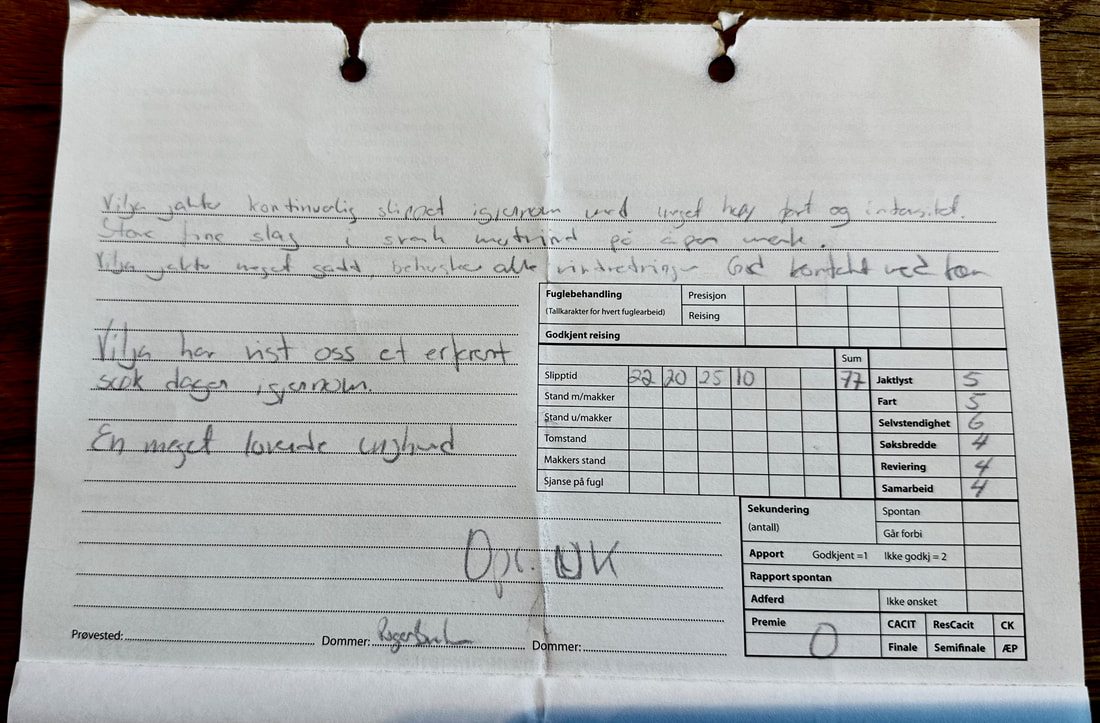 Vilja jakter kontinuerlig slippet igjennom med meget høy fart og intensitet.
Store fine slag i svak motvind på åpen mark.
Vilja jakter meget godt, behersker alle vindretninger God kontakt ved
Fuglebehandling Presisjon
(Tallkarakter for hvert fuglearbeid) Reising
Godkjent reising
Vilja har vist oss et erfarent
søk dagen igjennom.
En meget lovende unghund
Sum
Slipptid 22 20 25 10 77 Jaktlyst 5
Stand m/makker Fart 5
Stand u/makker Selvstendighet 6
Tomstand Søksbredde 4
Makkers stand Reviering 4
Sjanse på fugl Samarbeid 4
Sekundering Spontan
(antall) Går forbi
Apport Godkjent =1 Ikke godkj = 2
Rapport spontan
Adferd Ikke ønsket
Premie 0 CACIT ResCacit CK
Finale Semifinale ÆP
UK
Prøvested: Dommer: Roger Dommer: